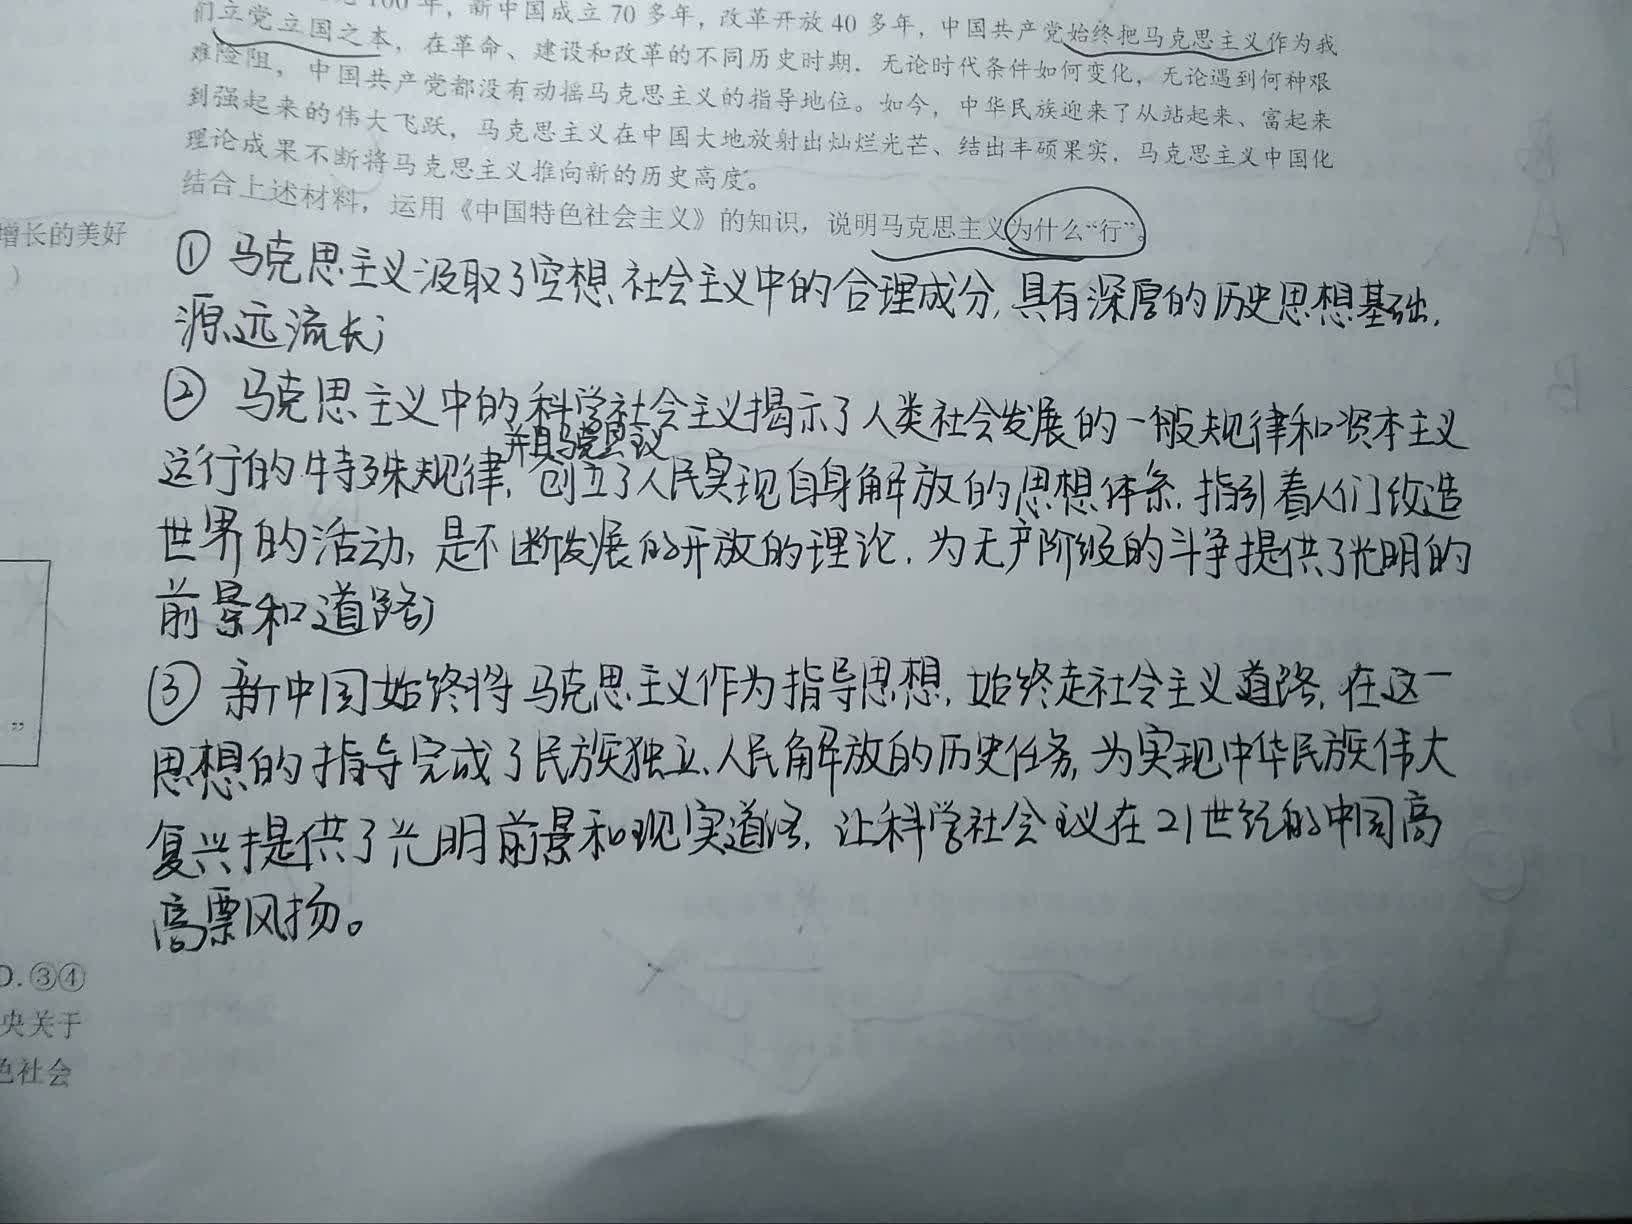 100年，新中国成立70多年，改革开放40多年，中国共产党始终把马克思主义作为我
们立党立国之本，在革命、建设和改革的不同历史时期，无论时代条件如何变化，无论遇到何种艰
难险阻，中国共产党都没有动摇马克思主义的指导地位。如今，中华民族迎来了从站起来、富起来
到强起来的伟大飞跃，马克思主义在中国大地放射出灿烂光芒、结出丰硕果实，马克思主义中国化
理论成果不断将马克思主义推向新的历史高度。
结合上述材料，运用《中国特色社会主义》的知识，说明马克思主义为什么“行”。
增长的美好
）
①马克思主义汲取了空想社会主义中的合理成分，具有深厚的历史思想基础，
源远流长；
②马克思主义中的科学社会主义揭示了人类社会发展的一般规律和资本主义
并且马克思主义
运行的特殊规律，创立了人民实现自身解放的思想体系，指引着人们改造
世界的活动，是不断发展的开放的理论，为无产阶级的斗争提供了光明的
前景和道路；
③新中国始终将马克思主义作为指导思想，始终走社会主义道路，在这一
思想的指导完成了民族独立、人民解放的历史任务，为实现中华民族伟大
复兴提供了光明前景和现实道路，让科学社会主义在21世纪的中国高
高票风扬。
”
D.③④
央关于
色社会